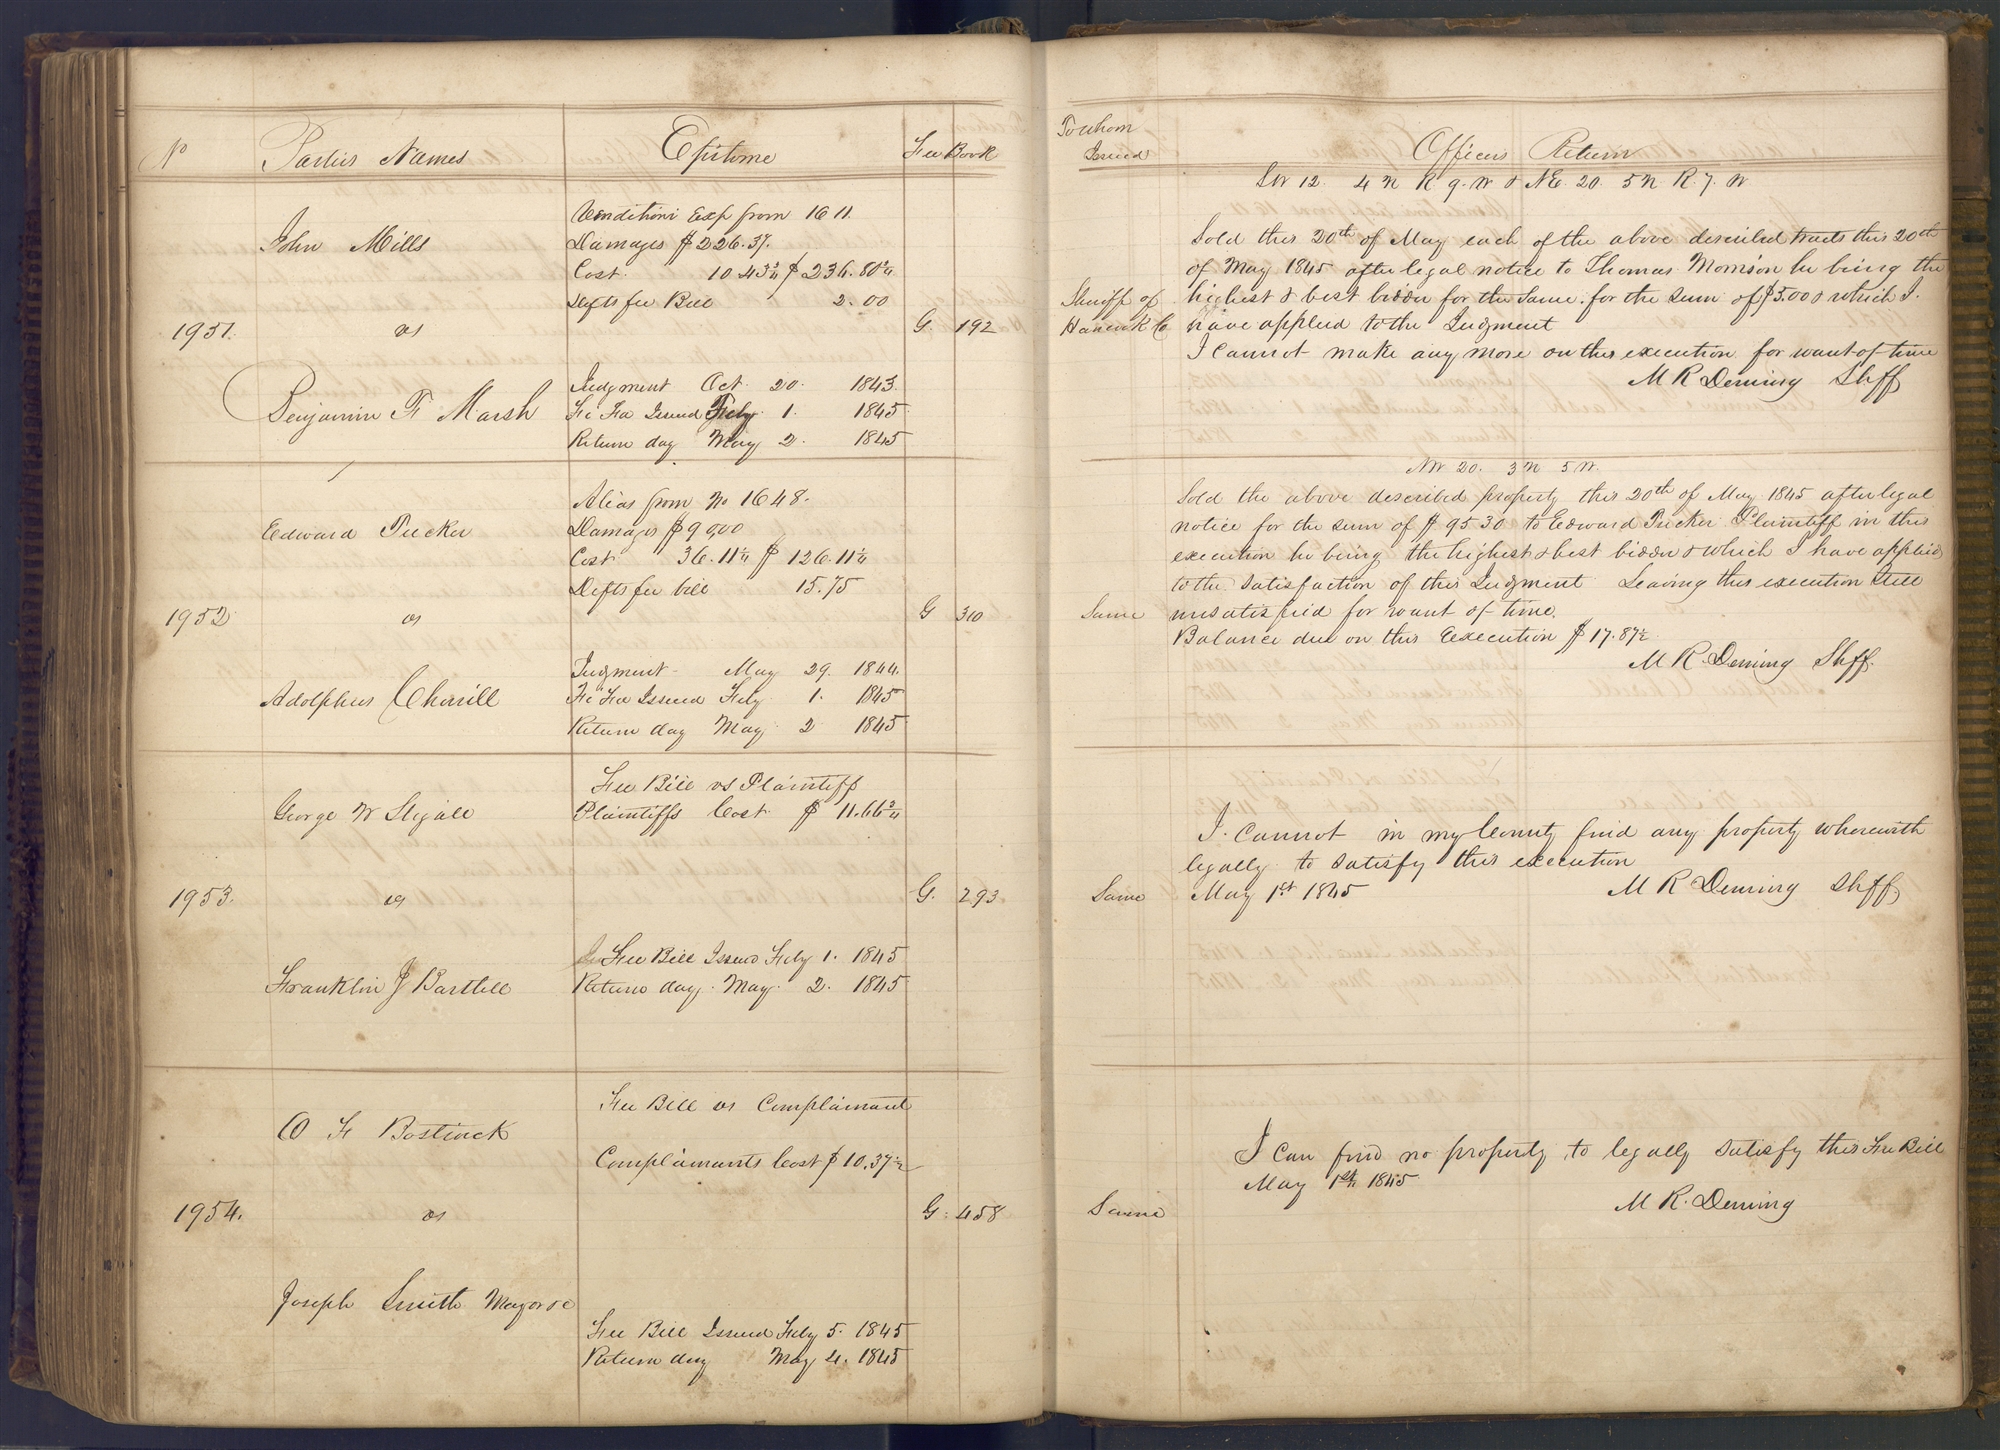 No
Parties Names
Epitome
Fee Book
John Mills
Venditioni Exp from 1611.
Damages $226.37.
Cost. 10.43¾ $236.80¾
Defts fee Bill 2.00
1951. vs G. 192
Benjamin F Marsh
Judgment Oct. 20. 1843.
Fi Fa Issued Feby. 1. 1845.
Return day May 2. 1845
Edward Tucker
Alias from No 1648.
Damages $90,00
Cost 36.11¼ $126.11¼
Defts fee bill 15.75
1952 vs G 310
Adolphus Cherrill
Judgment May 29. 1844.
Fi Fa Issued Feby 1. 1845
Return day May 2 1845
George W Stigall
Fee Bill vs Plaintiff
Plaintiffs Cost $11.66¾
1953. vs G. 293
Franklin J Bartlett
Fee Bill Issued Feby 1. 1845
Return day. May. 2. 1845
O F Bostwick
Fee Bill vs Complainant
Complainants Cost $10.37½
1954. vs G. 458
Joseph Smith Mayor &c
Fee Bill Issued Feby 5. 1845
Return day May 4. 1845
To whom
Issued
Officers Return
SW 12. 4 N R 9. W & NE. 20. 5 N R. 7. W
Sold this 20th of May each of the above described tracts this 20th
of May 1845 after legal notice to Thomas Morrison he being the
Sheriff of highest & best bidder for the same. for the sum of $5.00 & which I.
Hancock C have applied to the Judgment
I Cannot make any more on this execution for want of time
M R Deming Shff
NW 20. 3 N 5 W.
Sold the above described property this 20th of May 1845 after legal
notice for the sum of $95 30 to Edward Tucker Plaintiff in this
execution he being the highest & best bidder & which I have applied
to the satisfaction of this Judgment Leaving this execution Still
Same unsatisfied for want of time.
Balance due on this Execution $17.87½
M R. Deming Shff.
I. Cannot in my County find any property wherewith
legally to satisfy this execution
Same May 1st 1845 M R Deming Shff.
I Can find no property to legally satisfy this Fee Bill
May 1st 1845
Same M R. Deming